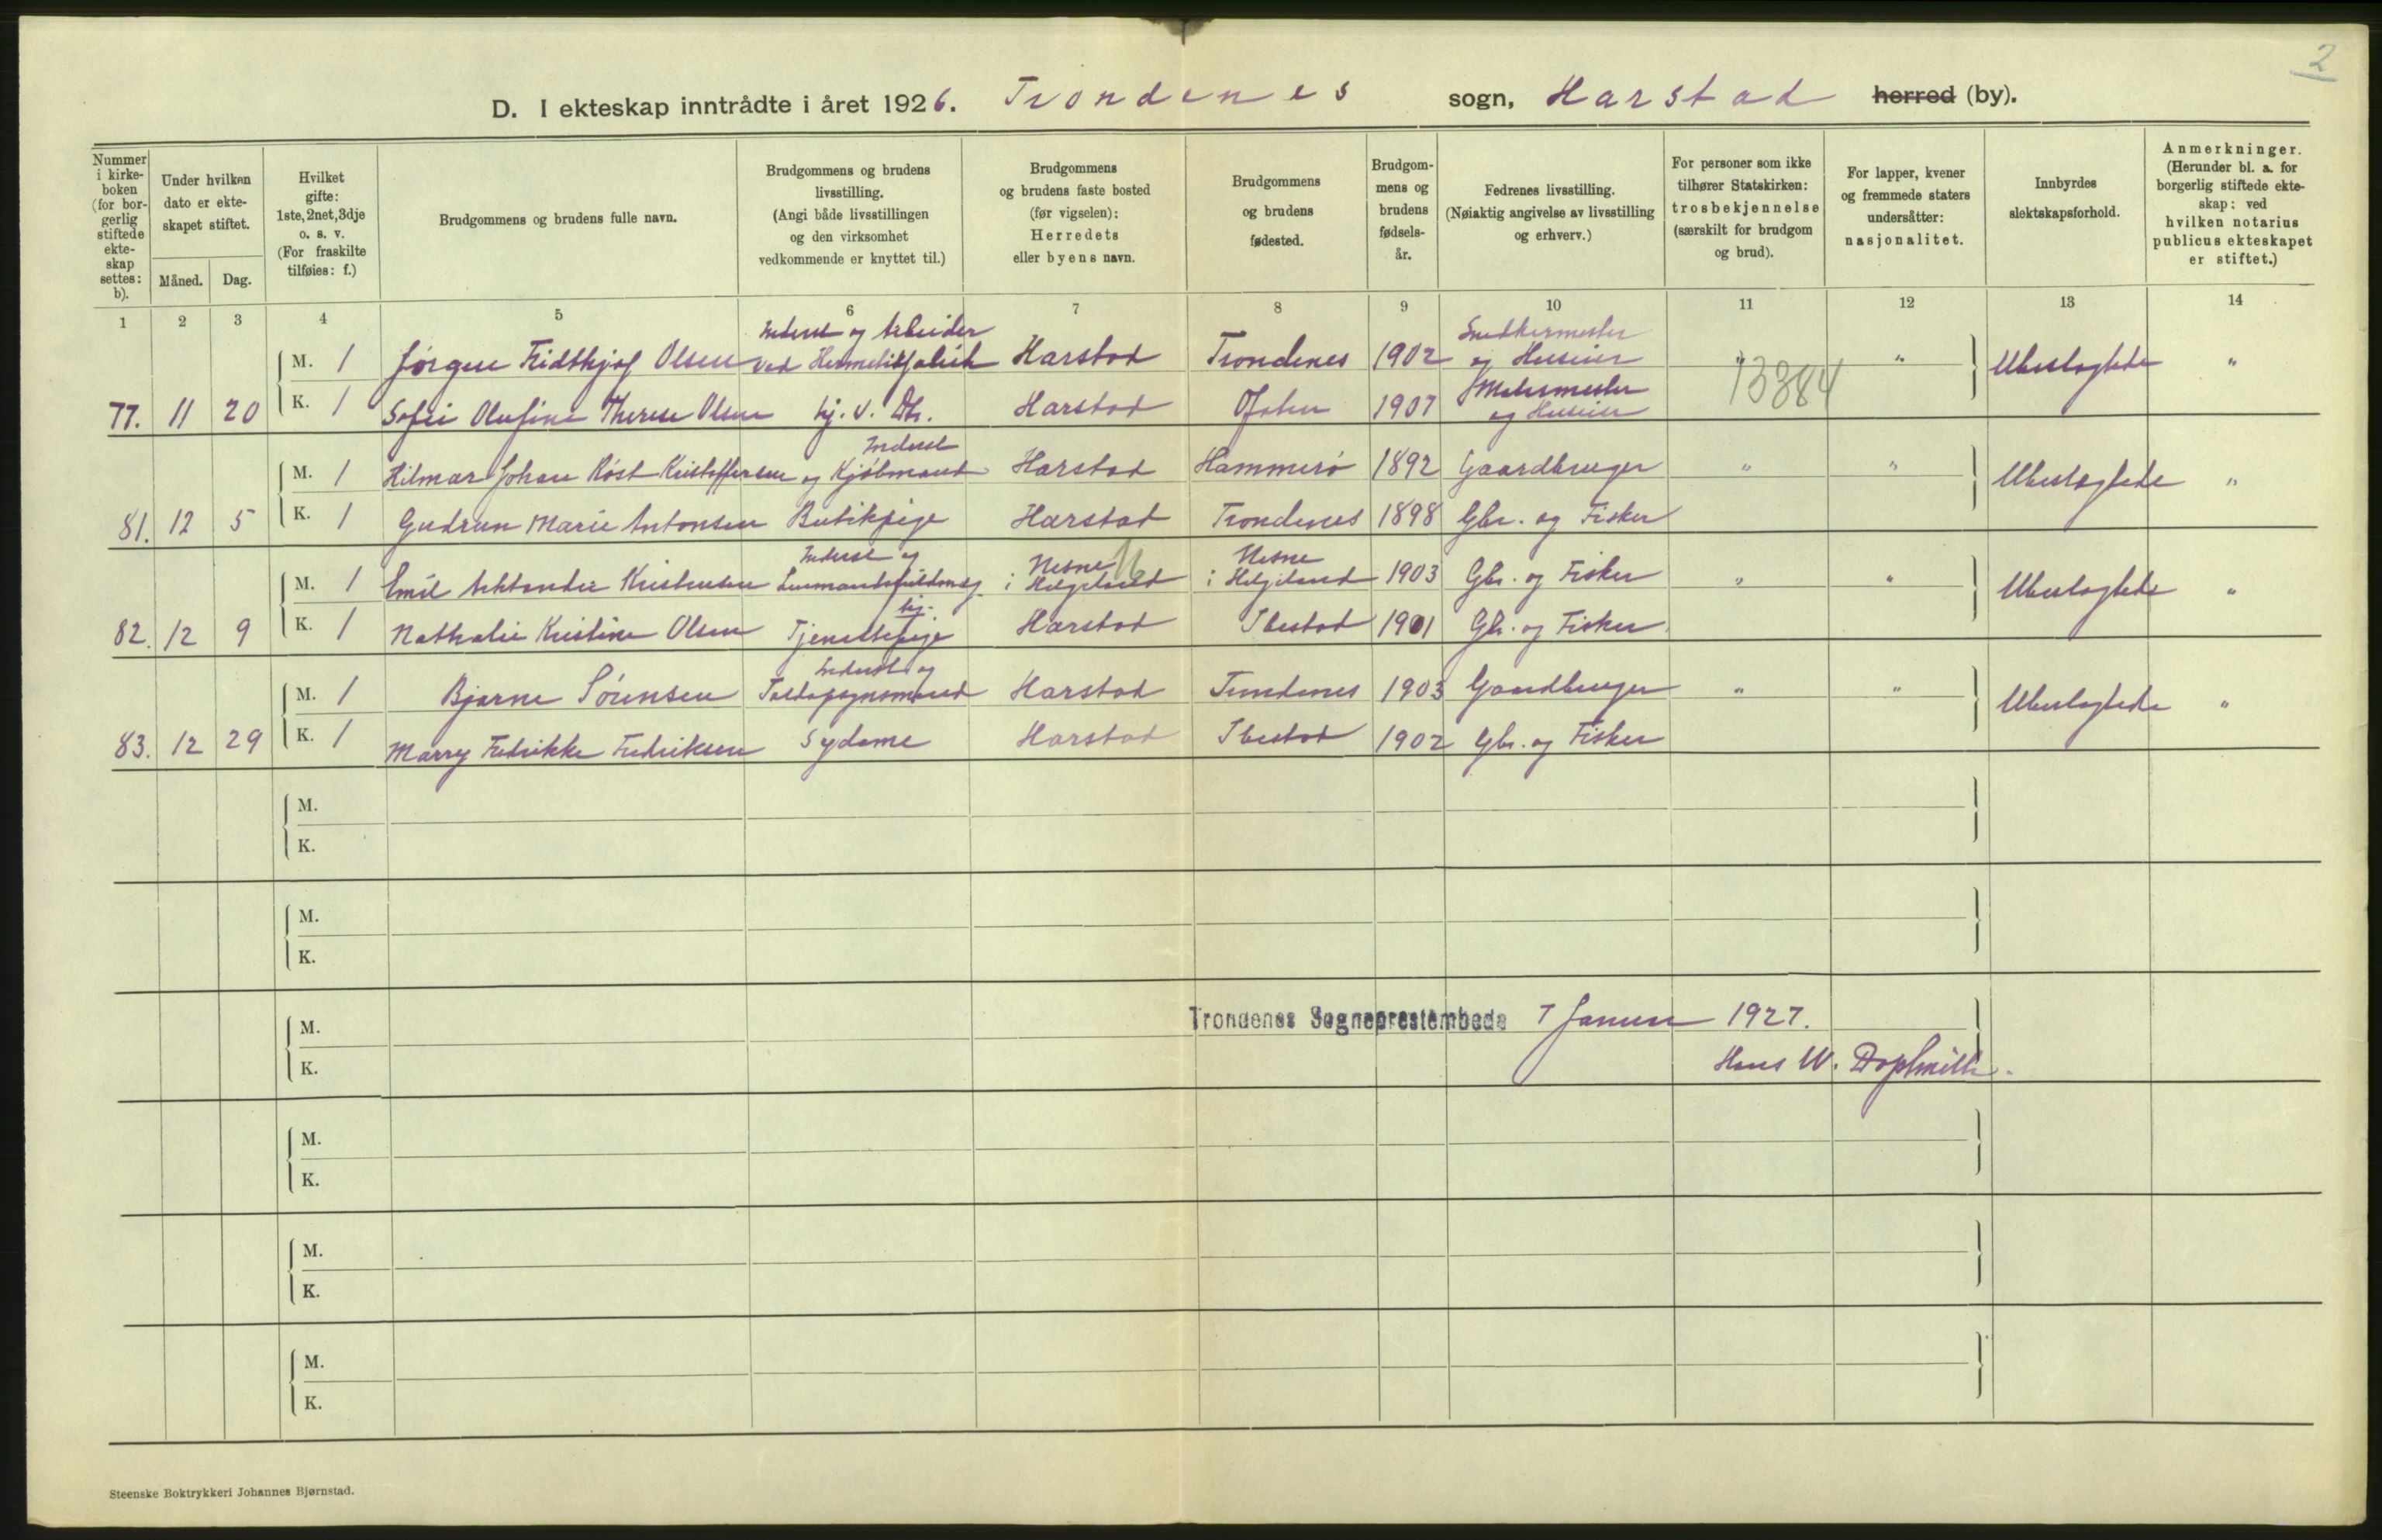 2
D. I ekteskap inntrådte i året 1926. Trondenes sogn, Harstad herred (by).
Nummer i kirke- boken (for bor- gerlig stiftede ekte- skap settes: b).
Under hvilken dato er ekte- skapet stiftet.
Måned. Dag.
Hvilket gifte: 1ste, 2net, 3dje o. s. v. (For fraskilte tilføies: f.)
Brudgommens og brudens fulle navn.
Brudgommens og brudens livsstilling. (Angi både livsstillingen og den virksomhet vedkommende er knyttet til.)
Brudgommens og brudens faste bosted (før vigselen): Herredets eller byens navn.
Brudgommens og brudens fødested.
Brudgom- mens og brudens fødsels- år.
Fedrenes livsstilling. (Nøiaktig angivelse av livsstilling og erhverv.)
For personer som ikke tilhører Statskirken: trosbekjennelse (særskilt for brudgom og brud).
For lapper, kvener og fremmede staters undersåtter: nasjonalitet.
Innbyrdes slektskapsforhold.
Anmerkninger. (Herunder bl. a. for borgerlig stiftede ekte- skap: ved hvilken notarius publicus ekteskapet er stiftet.)
1 2 3 4 5 6 7 8 9 10 11 12 13 14
Inderst og Arbeider Snedkermester
M. 1 Jørgen Fridthjof Olsen ved Hermetikfabrik Harstad Trondenes 1902 og Huseier " " Ubeslægtede "
13384
Malermester
77. 11 20 K. 1 Sofie Olufine Therese Olsen hj. v. Do. Harstad Ofoten 1907 og Huseier
Inderst
M. 1 Hilmar Johan Røst Kristoffersen og Kjølmand Harstad Hammerø 1892 Gaardbruger " " Ubeslægtede "
81. 12 5 K. 1 Gudrun Marie Antonsen Butikpige Harstad Trondenes 1898 Gbr. og Fisker
Inderst og Nesne Nesne
M. 1 Emil Arktander Kristensen Lensmandsfuldmæg. i Helgeland i Helgeland 1903 Gbr. og Fisker " " Ubeslægtede "
hj.
82. 12 9 K. 1 Nathalie Kristine Olsen Tjenestepige Harstad Ibestad 1901 Gbr. og Fisker
Inderst og
M. 1 Bjarne Sørensen Toldopsynsmand Harstad Trondenes 1903 Gaardbruger " " Ubeslægtede "
83. 12 29 K. 1 Marry Fredrikke Fredriksen Sydame Harstad Ibestad 1902 Gbr. og Fisker
M.
K.
M.
K.
M. Trondenes Sogneprestembede 7 Januar 1927.
K. Hans W.
M.
K.
M.
K.
M.
K.
Steenske Boktrykkeri Johannes Bjørnstad.